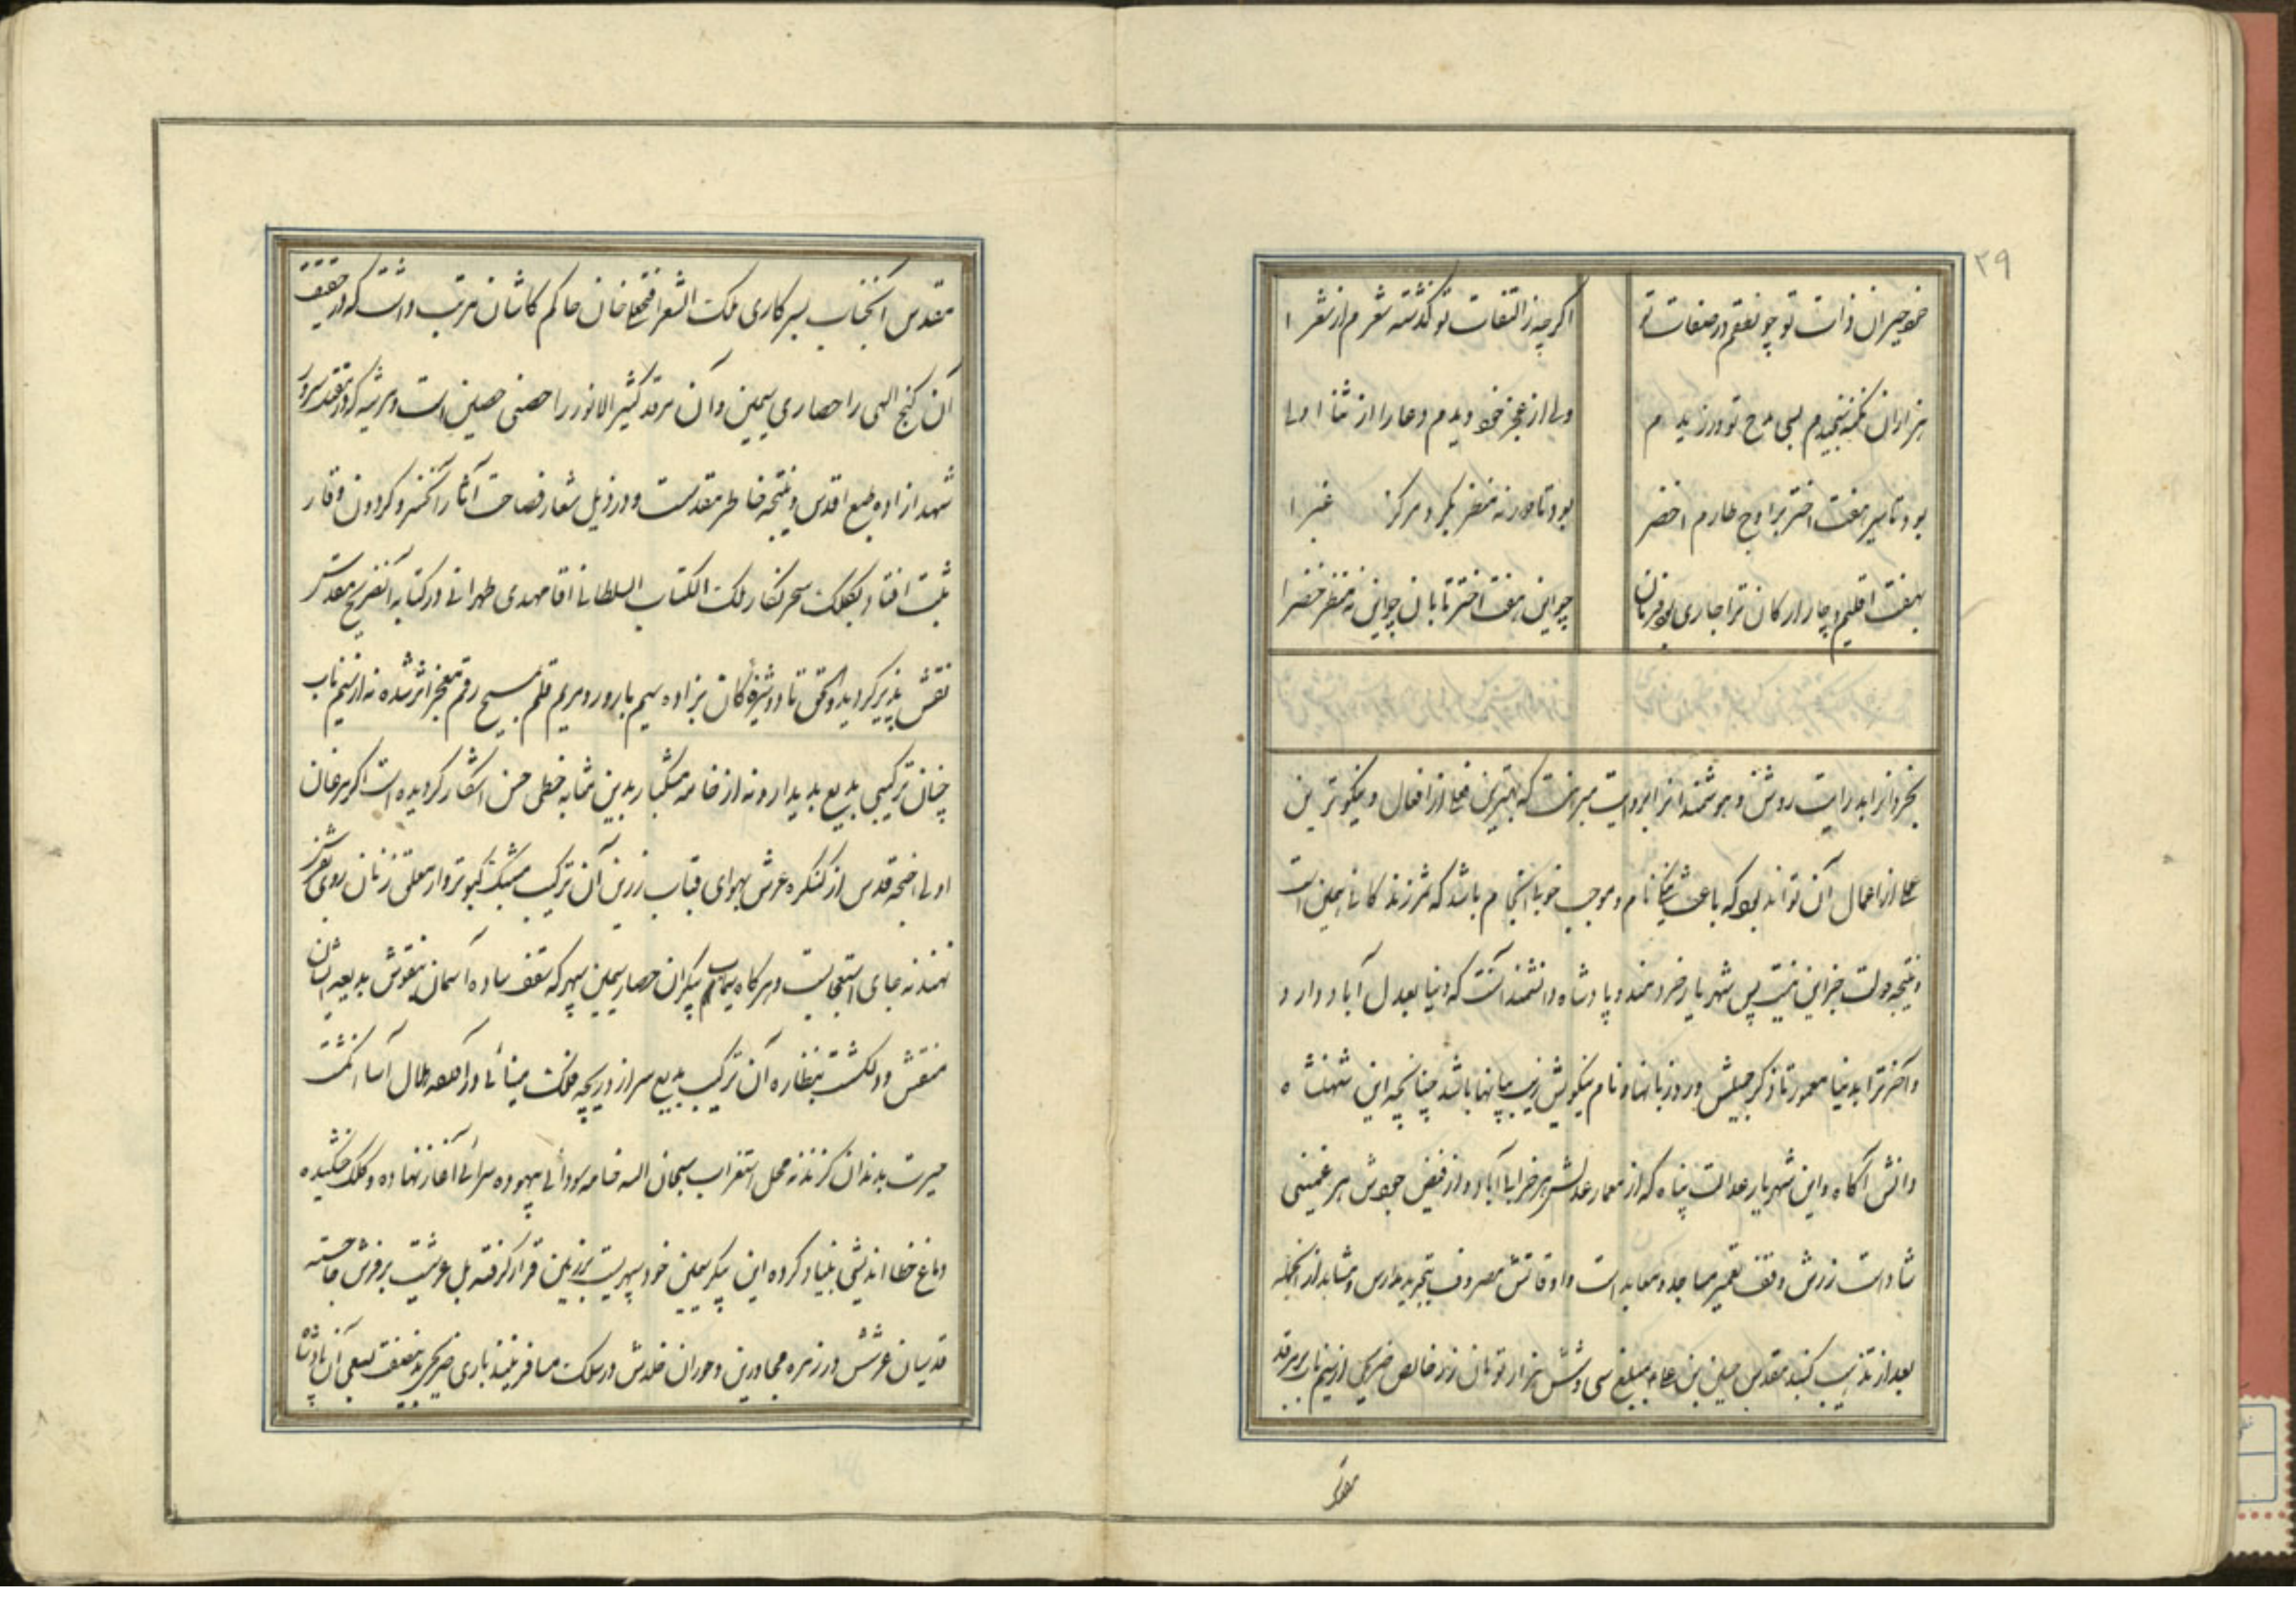 ۲۹
خود حیران ذات تو چو نعتم در صفات تو
اگر چه ز التفات تو گذشته شعرم از شعرا
هزاران نکته سنجیدم بسی مدح تو ورزیدم
ولی از عجز خود دیدم دعا را از ثنا اولی
بود تا سیر هفت اختر بر اوج طارم اخضر
بود تا دور نه منظر بگرد مرکز غبرا
بهفت اقلیم و چار ارکان ترا جاری بود فرمان
چو این هفت اختر تابان چو این نه منظر خضرا
بخردانرا بدرایت روشن و هوشمندانرا بروایت مبرهنست که بهترین فعلی از افعال و نیکوترین
عملی از اعمال آن تواند بود که باعث نیکی نام و موجب خوبی انجام باشد که ثمر زندگانی همین است
و نتیجه دولت جز این نیست پس شهریار خردمند و پادشاه دانشمند آنست که دنیا بعدل آباد دارد و
و آخرت را بدنیا معمور تا ذکر جمیلش ورد زبانها و نام نیکویش زیب بیانها باشد چنانچه این شهنشاه
دانش آگاه و این شهریار عدالت پناه که از معمار عدلش هر خرابی آباد و از فیض جودش هر غمینی
شاد است زرش وقف تعمیر مساجد و معابد است و اوقاتش مصروف بتجدید مدارس و مشاهد از آنجمله
بعد از تذهیب گنبد مقدس حسین بن علی بمبلغ سی و شش هزار تومان زر خالص ضریحی از سیم ناب بر مرقد
مقدس
مقدس آنجناب بسرکاری ملک الشعرا فتحعلی خان حاکم کاشان مرتب داشت که در حقیقت
آن گنج الهی را حصاری سیمین و آن مرقد کثیر الانور را حصنی حصین است و مرثیه که در تعقد سرور
شهدا زاده طبع اقدس و نتیجه خاطر مقدست و در ذیل شعار فصاحت آثار آنخسرو گردون وقار
ثبت افتاد بکلک سحر نگار ملک الکتاب السلطانی اقا مهدی طهرانی در کتابه آنضریح مقدس
نقش پذیر گردید الحق تا دوشیزه کان بزاده سیم بارور و مریم قلم مسیح رقم معجز اثر شده نه از سیم ناب
چنان ترکیبی بدیع پدیدار و نه از خامه مشکبار بدین مثابه خطی حسن آشکار گردیده است اگر مرغان
اولی اجنحه قدس از کنگره عرش بهوای قباب زرین آن ترکیب مشبک کبوتروار معلق زنان روی بفرش
نهند نه جای استعجابست و هر گاه سیماب پیکران حصار سیمین سپهر که سقف ساده آسمان بنقوش بدیعه ایشان
منقش و دلکشت بنظاره آن ترکیب بدیع سر از دریچه فلک مینائی در آمده هلال آسا انگشت
حیرت بدندان گزند نه محل استغراب سبحان الله خامه سودائی بیهوده سرائی آغاز نهاده و کلک خشکیده
دماغ خطا اندیشی بنیاد کرده این پیکر سیمین خود سپهریست بزمین قرار گرفته بل عرشیست بر فرش جا جسته
قدسیان عرشش در زمره مجاورین و حوران خلدش در سلک مسافرینند باری ضریحی بدینصفت بسعی آن پادشاه